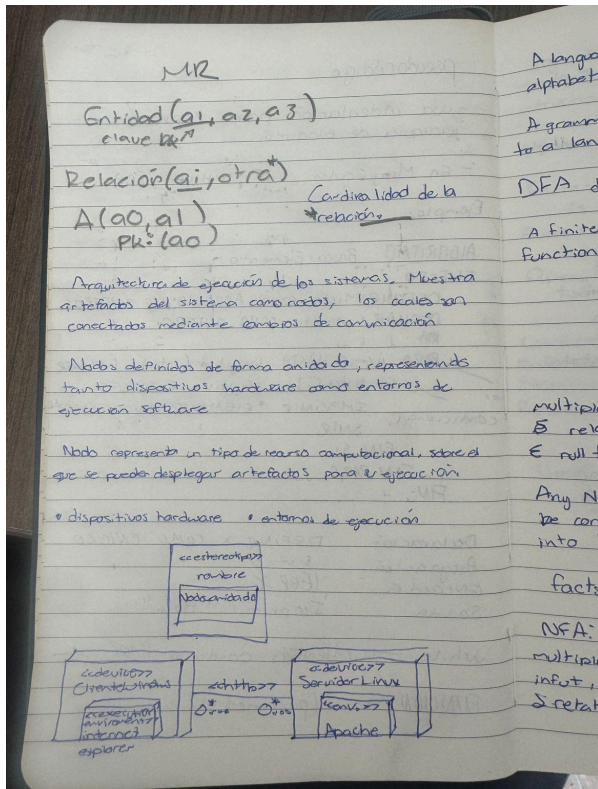 MR
Entidad (a1, a2, a3)
clave
Relación (ai, otra*)
Cardinalidad de la
*relación.
A (a0, a1)
PK: (a0)
Arquitectura de ejecución de los sistemas. Muestra
artefactos del sistema como nodos, los cuales son
conectados mediante cambios de comunicación
Nodos definidos de forma anidada, representando
tanto dispositivos hardware como entornos de
ejecución software
Nodo representa un tipo de recurso computacional, sobre el
que se pueden desplegar artefactos para ejecución.
• dispositivos hardware • entornos de ejecución
<<esthereotipo>>
nombre
Nodo anidado
<<device>>
Cliente Windows
<<execution
enviroment>>
internet
explorer
<<http>>
0..* 0..*
<<device>>
Servidor Linux
Apache
A langua
alphabet
A gramm
to a lan
DFA d
A finite
function
multiple
rela
null t
Any N
be con
into
fact
NFA:
multiple
input,